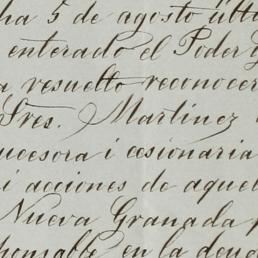 ha 5 de agosto últi
enterado el Poder
a resuelto reconocer
Sres. Martinez
ucesora i cesionaria
i acciones de aquel
Nueva Granada
ponsable en la deud